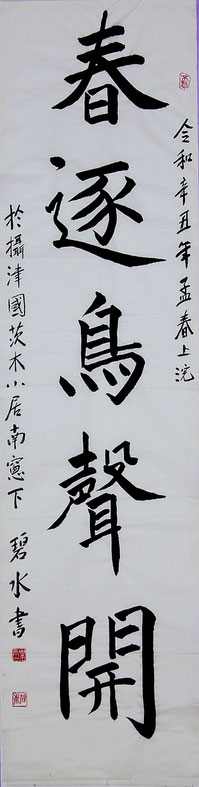 令和辛丑年孟春上浣
春逐鳥聲開
於攝津國茨木小居南窓下 碧水書